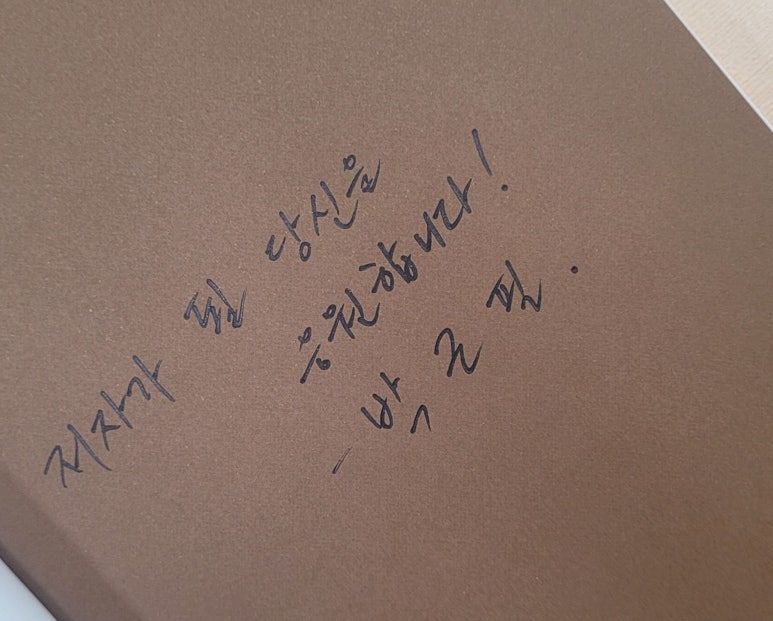 저자가 될 당신을
응원합니다!
- 박근필.